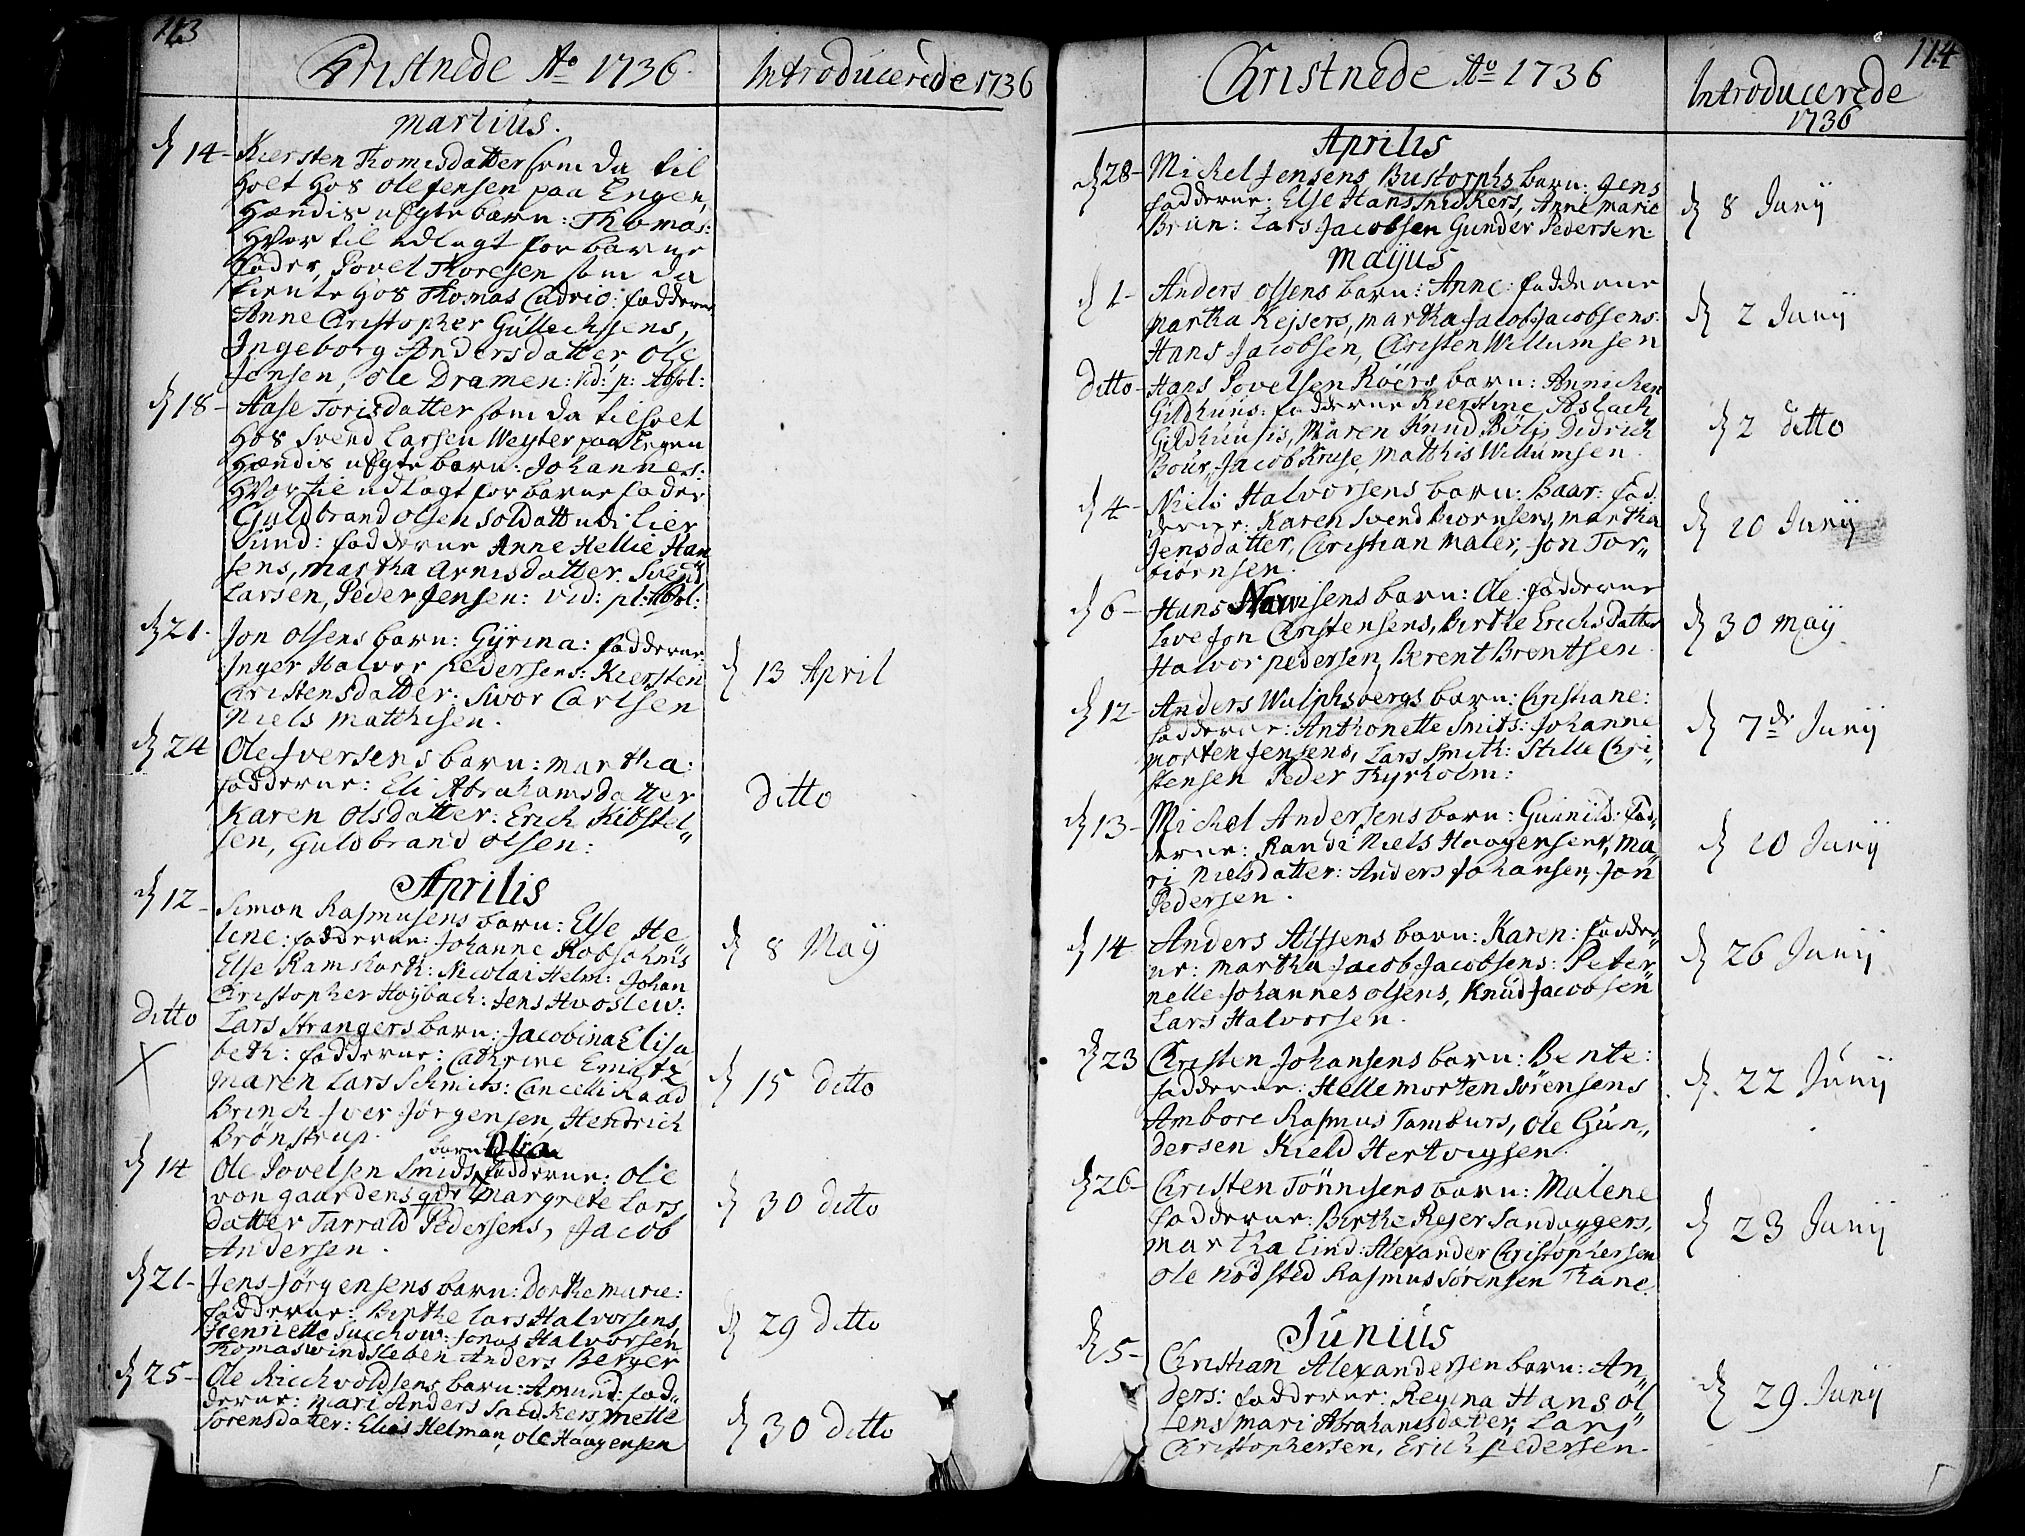 113
Christnede Ao 1736
Introducerede 1736
Martius.
d 14 - Kiersten Thomisdatter som da til
Holt hos Ole Jensen paa Engen,
Hændis uEgte barn: Thomas:
Hvor til udlagt for barne
fader, Povel Thoresen som da
tiente hos Thomas Cudrio: fadderne
Anne Christopher Gullechssens,
Ingeborg Andersdatter, Ole
Jonsen, Ole Dramen: vid: p: Absol:
d 18 - Aase Torisdatter som da tilholt
Hos Svend Larsen Weyter paa Engen
Hændis uEgte barn: Johannes:
Hvor til udlagt for barne fader
Guldbrand Olsen Soldatt udi Lier
Sund: fadderne Anne Hellie Han
sens, Martha Arnisdatter. Svend
Larsen, Peder Jensen: vid: pl: Absol:
d 21. Jon Olsens barn: Gÿrina: fadderne:
Inger Halvor Pedersens: Kiersten
Christensdatter: Sivor Carlsen
Niels Matthisen.
d 13 April
d 24 Ole Iversens barn: Martha:
fadderne: Eli Abrahamsdatter
Karen Olsdatter: Erich Kibstel„
sen, Guldbrand Olsen:
ditto
Aprilis
d 12 - Simon Rasmusens barn: Else He
lene: fadderne: Johanne Robsahms
Else Ramsharth: Nicolai Helm: Johan
Christopher Hoÿbach: Jens Hvoslew:
d 8 Maÿ
ditto Lars Strangers barn: Jacobina Elisa
beth: fadderne: Cathrine
Maren Lars Schmits: Cancelli Raad
Brinch Iver Jörgensen, Hendrich
Brönstrup.
d 15 ditto
barn Olia
d 14 Ole Povelsen Smids fadderne: Ole
von gaardens Margrete Lars
datter Tarrald Pedersens, Jacob
Andersen.
d 30 ditto
d 21 - Jens Jörgensens barn: Dorthe Marie:
fadderne: Birthe Lars Halvorsens,
Henriette Suchow: Jonas Halvorsen
Thomas Windsleben Anders Berger
d 29 ditto
d 25 - Ole Richvoldsens barn: Amund: fad„
derne: Mari Anders Snedkers, Mette
Sorensdatter: Elias Helman, Ole Haagensen
d 30 ditto
114
Christnede Ao 1736
Introducerede
1736
Aprilis
d 28 - Michel Jensens Bustorphs barn: Jens
fadderne: Else Hans Snedkers, Anne Marie
Brun: Lars Jacobsen Gunder Pedersen
d 8 Junÿ
Maÿus
d 1 - Anders Olsens barn: Anne: fadderne
Martha Kejsers, Martha Jacob Jacobsens:
Hans Jacobsen, Christen Willumsen
d 2 Junÿ
ditto - Hans Povelsen Röers barn: Annichen
Gildhuus: fadderne Kierstine Aslach
Gildhuusis, Maren Knud Böls, Didrich
Bour, Jacob Kruse, Matthis Willumsen.
d 2 ditto
d 4 - Niels Halvorsens barn: Baar: fad„
derne: Karen Svend Biornsens, Martha
Jensdatter, Christian Maler, Jon Tor„
biörnsen.
d 10 Junÿ
d 6 - Hans barn: Ole: fadderne
Live Jon Christensens, Birthe Erichsdatter
Halvor Pedersen, Berent Brentsen
d 30 Maÿ
d 12 - Anders Wulphsbergs barn: Christiane:
fadderne: Anthonette Smits: Johanne
Morten Jensens, Lars Smith: Stille Chri„
stensen Peder Thyrholm:
d 7de Junÿ
d 13 - Michel Andersens barn: Gunnild: fad„
derne: Randi Niels Haagensens, Ma„
ri Nielsdatter: Anders Johansen, Jon
Pedersen.
d 10 Junÿ
d 14 Anders Alfsens barn: Karen: fadder„
ne: Martha Jacob Jacobsens: Peter„
nelle Johannes Olsens, Knud Jacobsen
Lars Halvorsen.
d 26 Junÿ
d 23 Christen Johansens barn: Bente:
fadderne: Helle Morten Sörensens
Ambore Rasmus Tamburs, Ole Gun„
dersen Kield Hertvigsen.
d. 22 Junÿ
d 26 - Christen Tönnisens barn: Malene
fadderne: Birthe Rejer Sandaggers,
Martha Lind: Alexander Christophersen
Ole Nödsted Rasmus Sörensen Thane
d 23 Junÿ
Junius
d 5 - Christian Alexandersen barn: An„
ders: fadderne: Regina Hans Ol„
sens Mari Abrahamsdatter, Lars
Christophersen, Erich Pedersen.
d 29 Junÿ